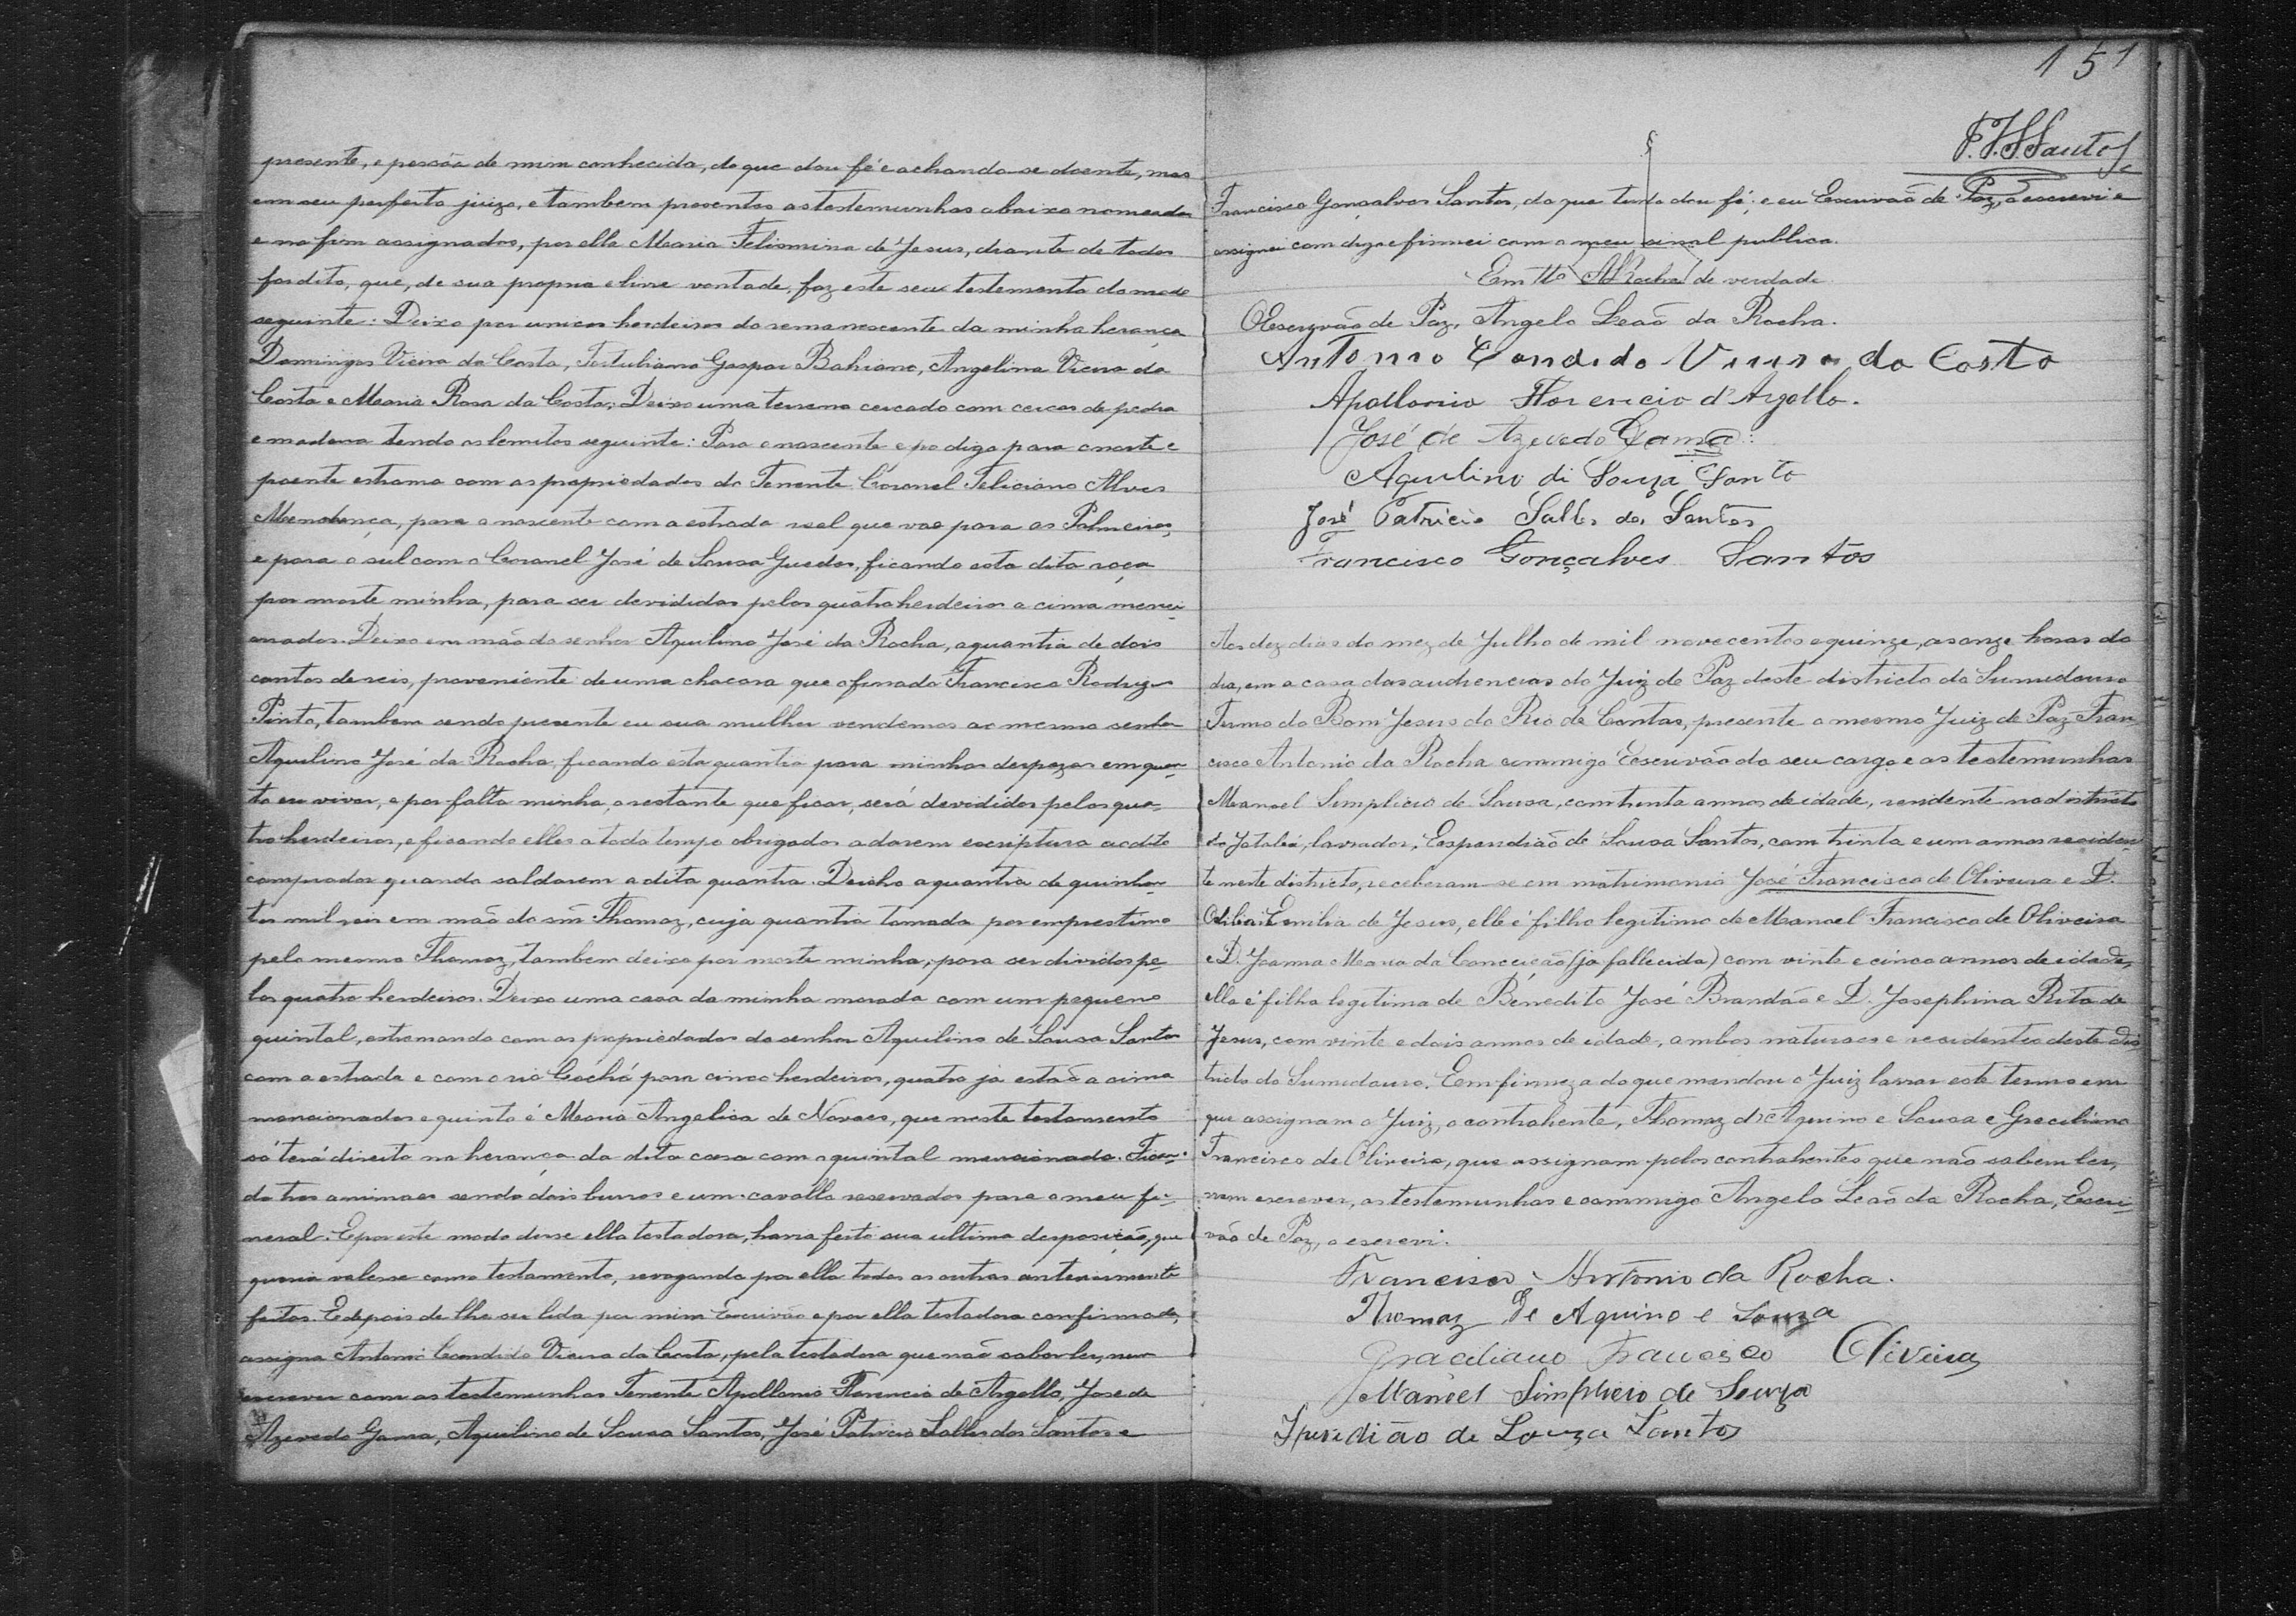 presente, e pessôa de mim conhecida, do que dou fé e achando-se doente, mas
em seu perfeito juizo, e tambem presentes as testemunhas abaixo nomeadas
e no fim assignados, por ella Maria Felismina de Jesus, diante de todos
foi dito, que, de sua propria e livre vontade, faz este seu testemento do modo
seguinte: Deixo por unicos herdeiros do remanescente da minha herança
Domingos Vieira da Costa, Tertuliano Gaspar Bahiano, Angelina Vieira da
Costa e Maria Rosa da Costa; Deixo uma terreno cercado com cercas de pedra
e madeira tendo os lemitos seguinte: Para o nascente e po digo para o norte e
poente estrema com as propriedades do Tenente Coronel Feliciano Alves
Mendonça, para o nascente com a estrada real que vae para as Palmeiras,
e para o sul com o Coronel José de Sousa Guedes, ficando esta dita roça
por morte minha, para ser devididas pelos quatro herdeiros a cima menci-
onados. Deixo em mão do senhor Aquilino José da Rocha, a quantia de dois
contos de reis, proveniente de uma chacara que o finado Francisco Rodrigues
Pinto, tambem sendo presente eu sua mulher vendemos ao mesmo senhor
Aquilino José da Rocha, ficando esta quantia para minhas despezas em quan-
to eu viver, e por falta minha, o restante que ficar, será devididos pelos qua-
tro herdeiros, e ficando elles a todo tempo obrigados a darem escriptura ao dito
comprador quando saldarem a dita quantia. Deicho a quantia de quinhen-
tos mil reis em mão do snr. Thomaz, cuja quantia tomada por emprestimo
pelo mesmo Thomaz, tambem deixo por morte minha, para ser dividos pe-
los quatro herdeiros. Deixo uma casa da minha morada com um pequeno
quintal, estremando com as propriedades do senhor Aquilino de Sousa Santos
com a estrada e com o rio Cochó para cinco herdeiros, quatro já estão a cima
mencionados e quinto é Maria Angelica de Novaes, que neste testamento
só terá direito na herança da dita casa com o quintal mencionado. Fican-
do tres animaes sendo dois burros e um cavallo reservados para o meu fu-
neral. E por este modo disse ella testadora, havia feito sua ultima desposição, que
queria valesse como testamento, revogando por ella todos as outras anteriormente
feitos. E depois de lhe ser lida por mim Escrivão e por ella testadora confirmada,
assigna Antonio Candido Vieira da Costa, pela testadora que não saber ler, nem
escrever com as testemunhas Tenente Apollonio Florencio de Argollo, José de
Azevedo Gama, Aquilino de Sousa Santos, José Patricio Salles dos Santos e
151
Santos
Francisco Gonçalves Santos, do que tudo dou fé; e eu Escrivão de Paz, o escrevi e
assignei com digo e firmei com o meu sinal publico.
Em tto ARocha de verdade
O Escrivão de Paz, Angelo Leão da Rocha.
Antonio Candido Vieira da Costa
Apollonio Florencio d'Argollo.
José de Azevedo Gama:
Aquilino di Souza Santo
José Patricio Salles dos Santos
Francisco Gonçalves Santos
Aos dez dias do mez de Julho de mil nove centos e quinze, as onze horas do
dia, em a casa das audiencias do Juiz de Paz deste districto do Sumidouro
Termo do Bom Jesus do Rio de Contas, presente o mesmo Juiz de Paz Fran-
cisco Antonio da Rocha commigo Escrivão do seu cargo e as testemunhas
Manoel Simplicio de Sousa, com trinta annos de idade, residente no districto
de lavrador, Esperidião de Sousa Santos, com trinta e um annos residen-
te neste districto, receberam-se em matrimonio José Francisco de Oliveira e D.
Emilia de Jesus, elle é filho legitimo de Manoel Francisco de Oliveira
e D. Joanna Maria da Conceição (já fallecida) com vinte e cinco annos de idade,
ella é filha legitima de Benedito José Brandão e D. Josephina Rita de
Jesus, com vinte e dois annos de idade, ambos naturaes e residentes deste dis-
tricto do Sumidouro. Em firmeza do que mandou o Juiz lavrar este termo em
que assignam o Juiz, o contrahente, Thomaz d'Aquino e Sousa e Graciliano
Francisco de Oliveira, que assignam pelos contrahentes que não sabem ler,
nem escrever, as testemunhas e commigo Angelo Leão da Rocha, Escri-
vão de Paz, o escrevi.
Francisco Antonio da Rocha.
Thomaz de Aquino e Souza
Graciliano Francisco Oliveira
Manoel Simplicio de Souza
Speridião de Souza Santos